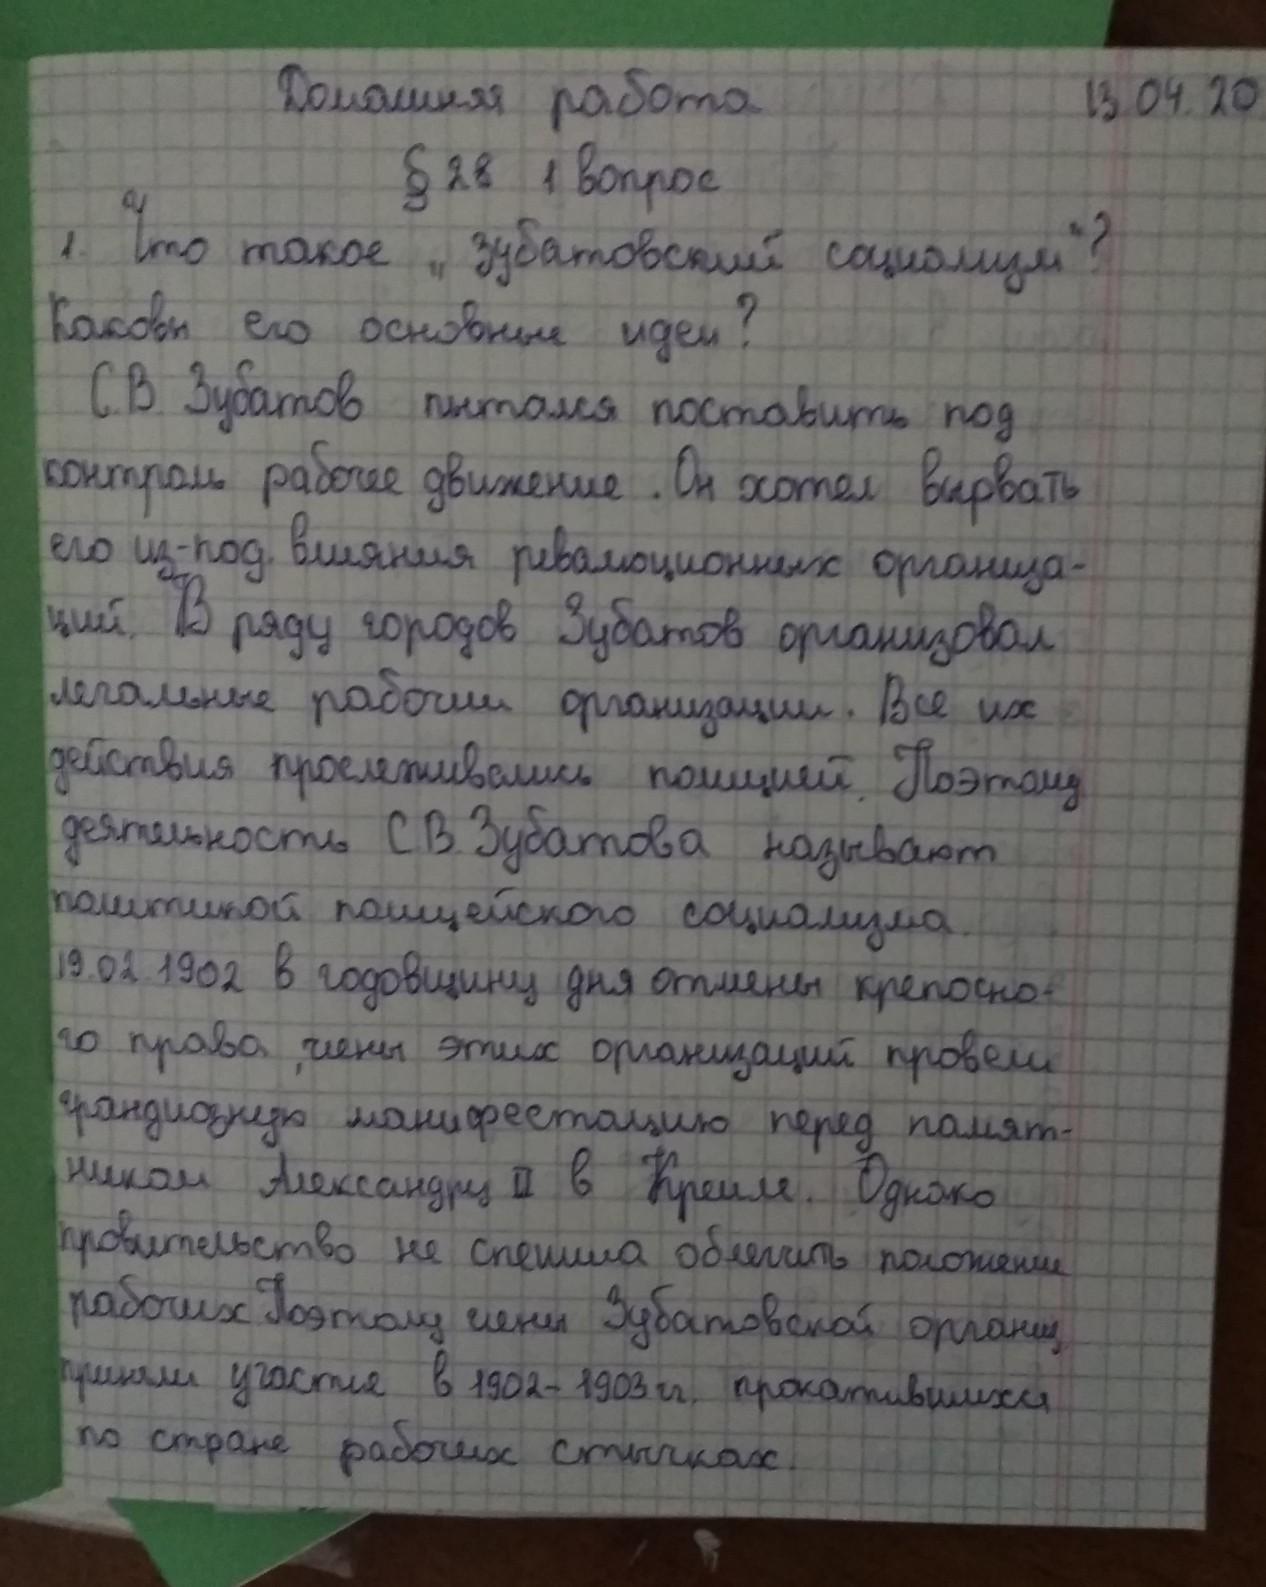 Домашняя работа 13.04.20
§ 28 1 вопрос
1. Что такое „зубатовский социализм"?
Каковы его основные идеи?
С.В. Зубатов пытался поставить под
контроль рабочее движение. Он хотел вырвать
его из-под влияния революционных организа-
ций. В ряду городов Зубатов организовал
легальные рабочии организации. Все их
действия прослеживались полицией. Поэтому
деятельность С.В. Зубатова называют
политикой полицейского социализма.
19.02.1902 в годовщину дня отмены крепосно-
го права, члены этих организаций провели
грандиозную манифестацию перед памят-
ником Александру II в Кремле. Однако
провительство не спешила облегчить положение
рабочих Поэтому члены Зубатовской организ.
приняли участие в 1902-1903 гг. прокатившихся
по стране рабочих стычках.